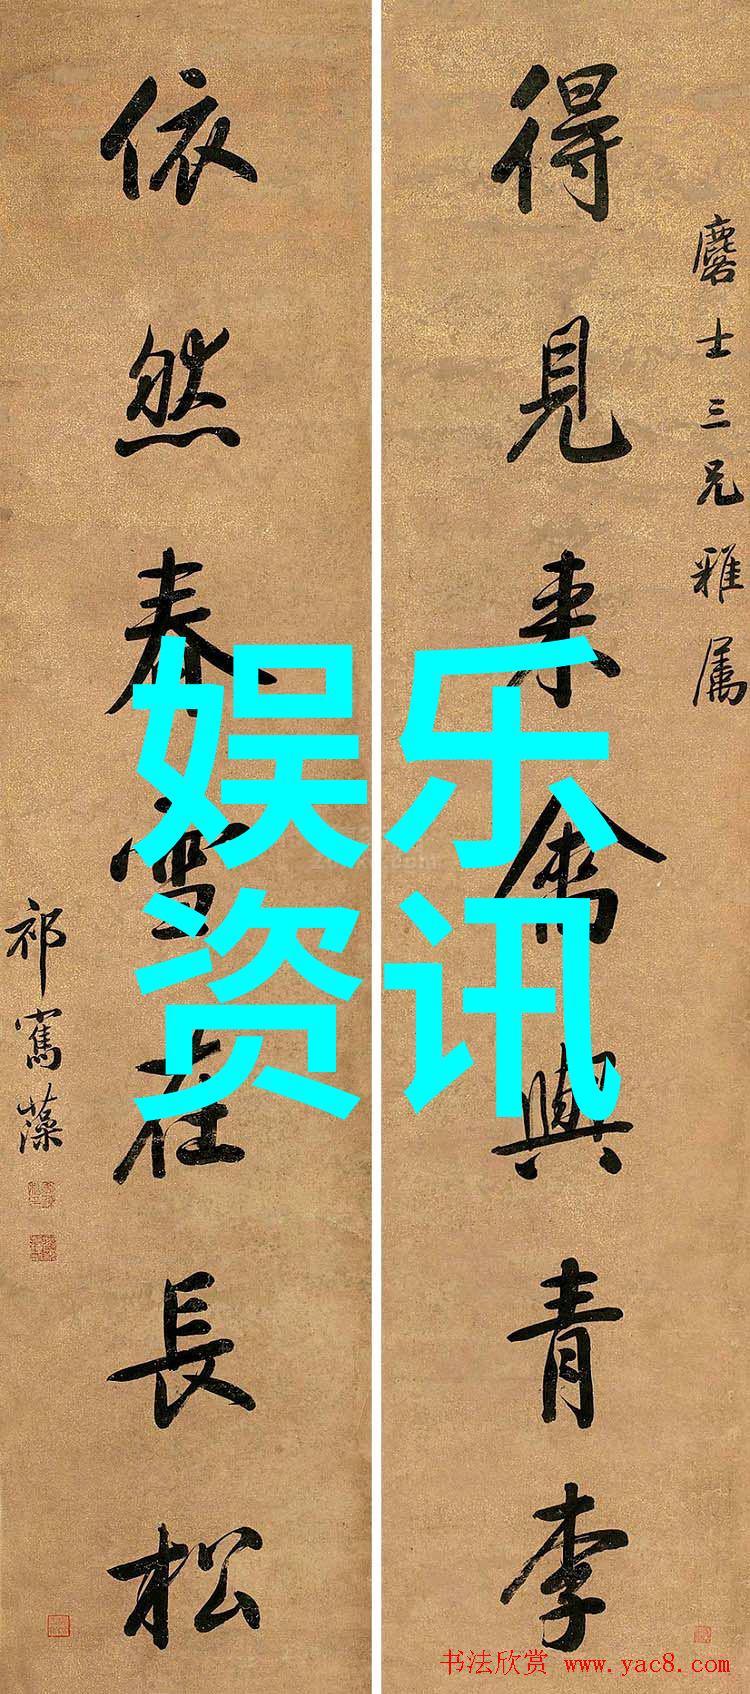 得見来禽與青李
麐士三兄雅屬
依然春雪在長松
祁寯藻
娱乐
资讯
书法欣赏 www.yac8.com